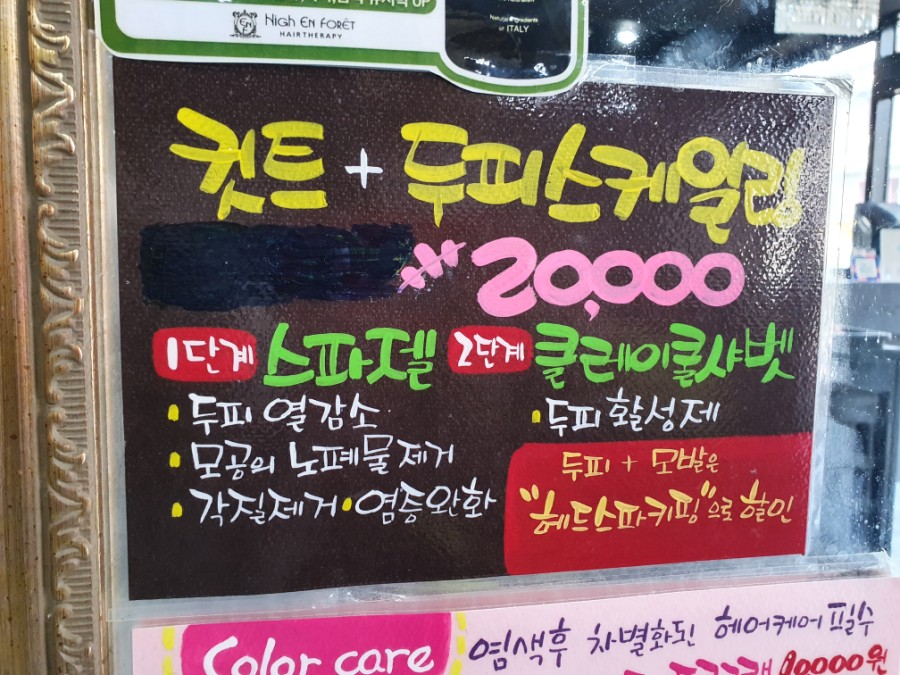 UP
High En Forêt
HAIRTHERAPY
of ITALY
컷트 + 두피스케일링
₩20,000
1단계 스파젤 2단계 클레이쿨샤벳
· 두피 열감소
· 모공의 노폐물 제거
· 각질제거 · 염증완화
· 두피 활성제
두피 + 모발은
"헤드스파키핑"으로 할인
Color care
염색후 차별화된 헤어케어 필수
10,000원